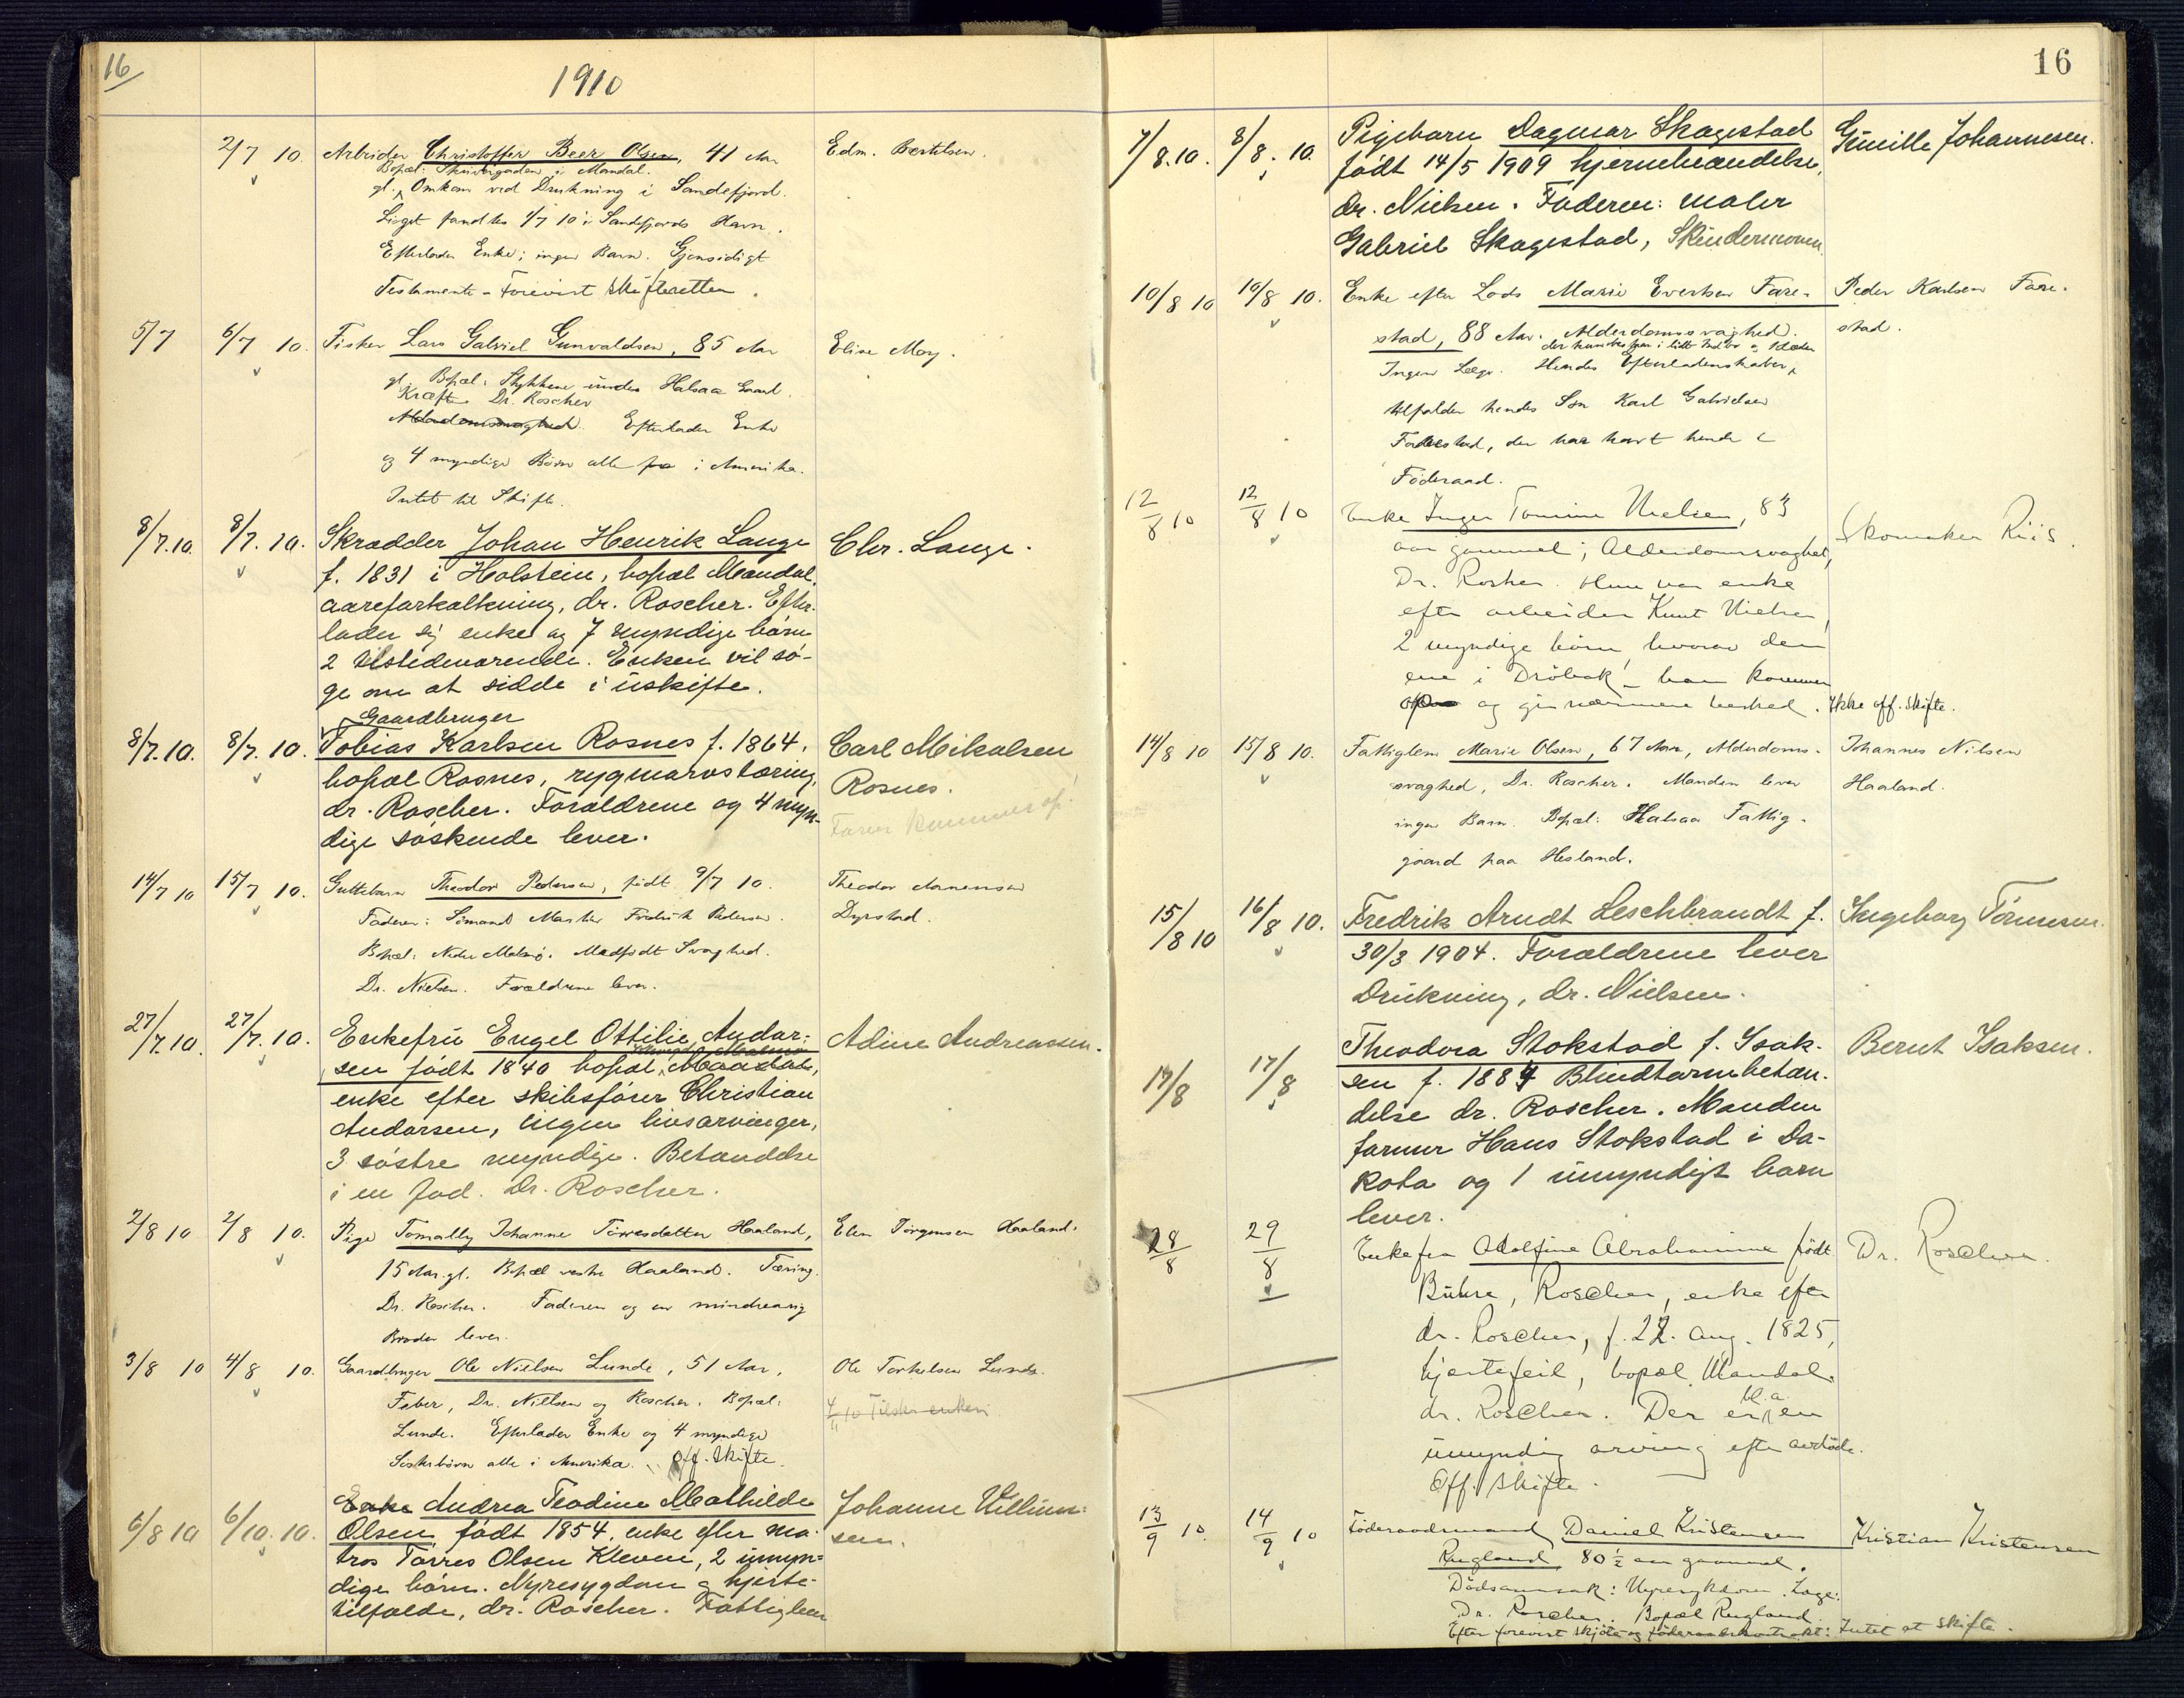 16
1910
2/7 10. Arbeider Christoffer Beer Olsen, 41 Aar Edm. Bertelsen.
Bopæl: Skrivergaden i Mandal.
gl. Omkom ved Drukning i Sandefjord.
Liget fandtes 1/7 10 i Sandefjords Havn.
Efterlader Enke; ingen Barn. Gjensidigt
Testamente - Forevist Skifteretten.
5/7 6/7 10. Fisker Lars Gabriel Gunvaldsen, 85 Aar Elise Moy.
gl. Bopæl: Stykkene under Halsaa Gaard.
Kræft Dr. Roscher
Alderdomssvaghed. Efterlader Enke
og 4 myndige Børn alle i Amerika.
Intet til Skifte.
8/7.10. 8/7.10. Skrædder Johan Henrik Lange Chr. Lange.
f. 1831 i Holstein, bopæl Mandal.
aareforkalkning, dr. Roscher. Efter-
lader sig enke og 7 myndige børn
2 tilstedeværende. Enken vil sø-
ge om at sidde i uskifte.
Gaardbruger
8/7.10. 8/7.10. Tobias Karlsen Rosnes f. 1864. Carl Mikalsen
bopæl Rosnes, rygmarvstæring, Rosnes.
dr. Roscher. Forældrene og 4 myn- Faren kommer op!
dige søskende lever.
14/7 10 15/7 10. Guttebarn Theodor Pedersen, født 9/7 10. Theodor Aanensen
Faderen: Sømand Martin Fredrik Pedersen. Dyrstad.
Bopæl: Nedre Malmø. Medfødt Svaghed.
Dr. Nielsen. Forældrene lever.
27/7.10. 27/7.10. Enkefru Engel Ottilie Andor- Adine Andreassen.
sen født 1840 bopæl Mandal,
enke efter skibsfører Christian
Andorsen, ingen livsarvinger,
3 søstre myndige. Betændelse
i en fod. Dr. Roscher.
2/8 10 2/8 10. Pige Tomally Johanne Tørresdatter Haaland, Elen Jørgensen Haaland.
15 Aar gl. Bopæl vestre Haaland. Tæring.
Dr. Roscher. Faderen og en mindreaarig
Broder lever.
3/8 10 4/8 10. Gaardbruger Ole Nielsen Lunde, 51 Aar, Ole Torkelsen Lunde.
Feber, Dr. Nielsen og Roscher. Bopæl: 4/11 10 Tilskr. enken
Lunde. Efterlader Enke og 4 myndige
Søsterbørn alle i Amerika. Off. Skifte.
6/8 10 6/10.10. Enke Andrea Teodine Mathilde Johanne Willum-
Olsen født 1854, enke efter ma- sen.
tros Tørres Olsen Kleven, 2 umyn-
dige børn. Nyresygdom og hjerte-
tilfælde, dr. Roscher. Fattiglem
16
7/8.10. 8/8.10. Pigebarn Dagmar Skagestad Gunille Johannesen.
født 14/5 1909 hjernebetændelse,
dr. Nielsen. Faderen: maler
Gabriel Skagestad, Skindermoen
10/8 10 10/8 10. Enke efter Lods Marie Evertsen Fare- Peder Karlsen Fare-
stad, 88 Aar. Alderdomssvaghed. stad.
der kun bestaar i lidt Indbo og Klæder
Ingen Læge. Hendes Efterladenskaber,
tilfalder hendes Søn Karl Gabrielsen
Farestad, der har havt hende i
Føderaad.
12/8 10 12/8 10 Enke Inger Tomine Nielsen, 83 Skomaker Riis.
aar gammel; Alderdomssvaghet,
Dr. Roscher. Hun var enke
efter arbeider Knut Nielsen,
2 myndige børn hvorav den
ene i Drøbak - han kommer
op og gir nærmere beskel. Ikke off. skifte.
14/8 10 15/8 10. Fattiglem Marie Olsen, 67 Aar, Alderdoms- Johannes Nilsen
svaghed, Dr. Roscher. Manden lever Haaland.
ingen Barn. Bopæl: Halsaa Fattig-
gaard paa Hesland.
15/8 10 16/8 10. Fredrik Arndt Leschbrandt f. Ingeborg Tønnesen.
30/3 1904. Forældrene lever
Drukning, dr. Nielsen.
17/8 17/8 Theodora Stokstad f. Isak- Bernt Isaksen.
sen f. 1884 Blindtarmbetæn-
delse dr. Roscher. Manden
farmer Hans Stokstad i Da-
kota og 1 umyndigt barn
lever.
28/8 29/8 Enkefru Adolfine Abrahamine født Dr. Roscher.
Buhre, Roscher, enke efter
dr. Roscher, f. 22. aug. 1825,
hjertefeil, bopæl Mandal.
dr. Roscher. Der er bl.a. en
umyndig arving efter avdøde.
Off. skifte.
13/9 10. 14/9 10 Føderaadsmand Daniel Kristensen Kristian Kristensen
Rugland, 80 1/2 aar gammel.
Dødsaarsak: Nyresykdom. Læge:
Dr. Roscher. Bopæl Rugland.
Efter forevist skjøte og føderaadskontrakt: Intet at skifte.